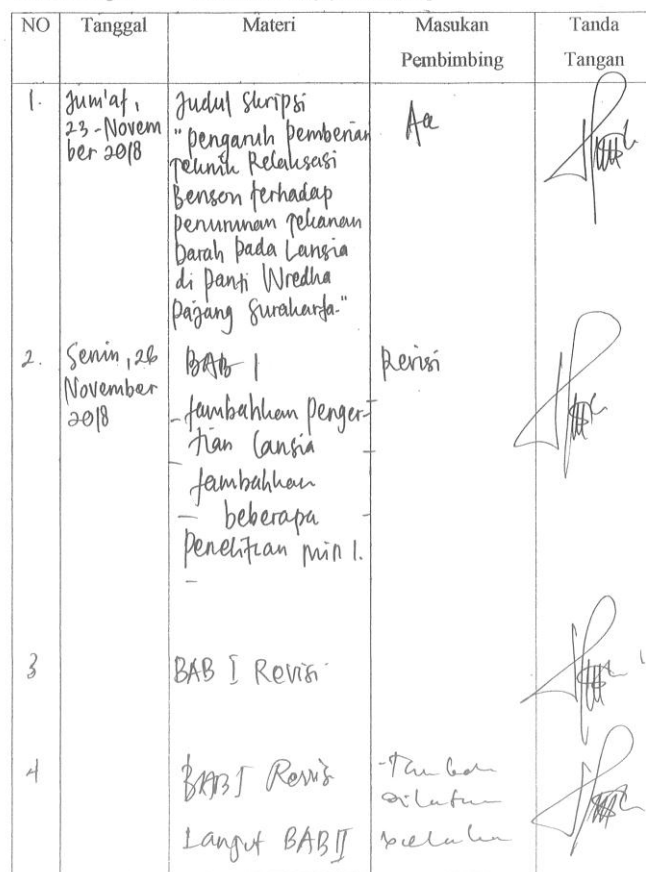 NO Tanggal Materi Masukan Pembimbing Tanda Tangan
1. Jum'at, 23-Novem ber 2018
Judul Skripsi
"Pengaruh Pemberian
Teknik Relaksasi
Benson terhadap
penurunan Tekanan
Darah pada Lansia
di Panti Wredha
Pajang Surakarta."
Acc
2. Senin, 26 November 2018
BAB I
- tambahkan Penger-
tian lansia
tambahkan
- beberapa
Penelitian min 1.
-
Revisi
3 BAB I Revisi
4 BAB I Revisi
Lanjut BAB II